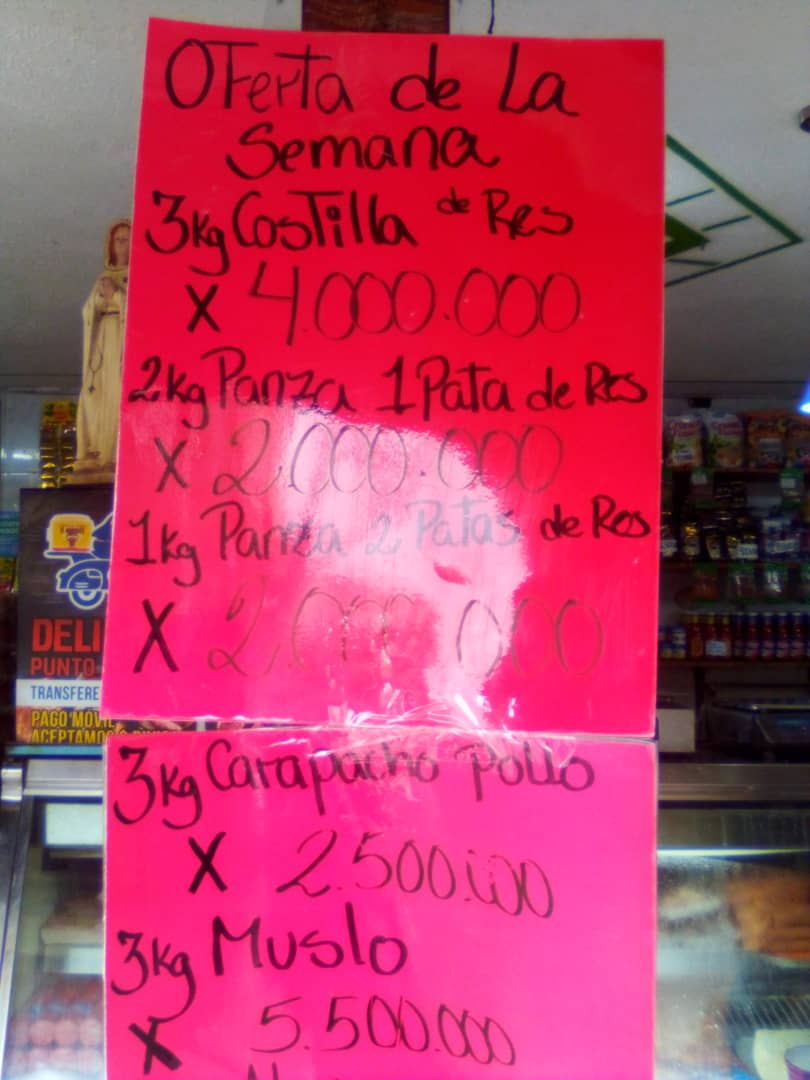 OFerta de La
Semana
3kg Costilla de Res
X 4.000.000
2kg Panza 1 Pata de Res
X 2.000.000
1kg Panza 2 Patas de Res
X 2.000.000
3kg Carapacho Pollo
X 2.500.000
3kg Muslo
X 5.500.000
DELI
PUNTO
TRANSFERE
PAGO MÓVIL
ACEPTAMOS